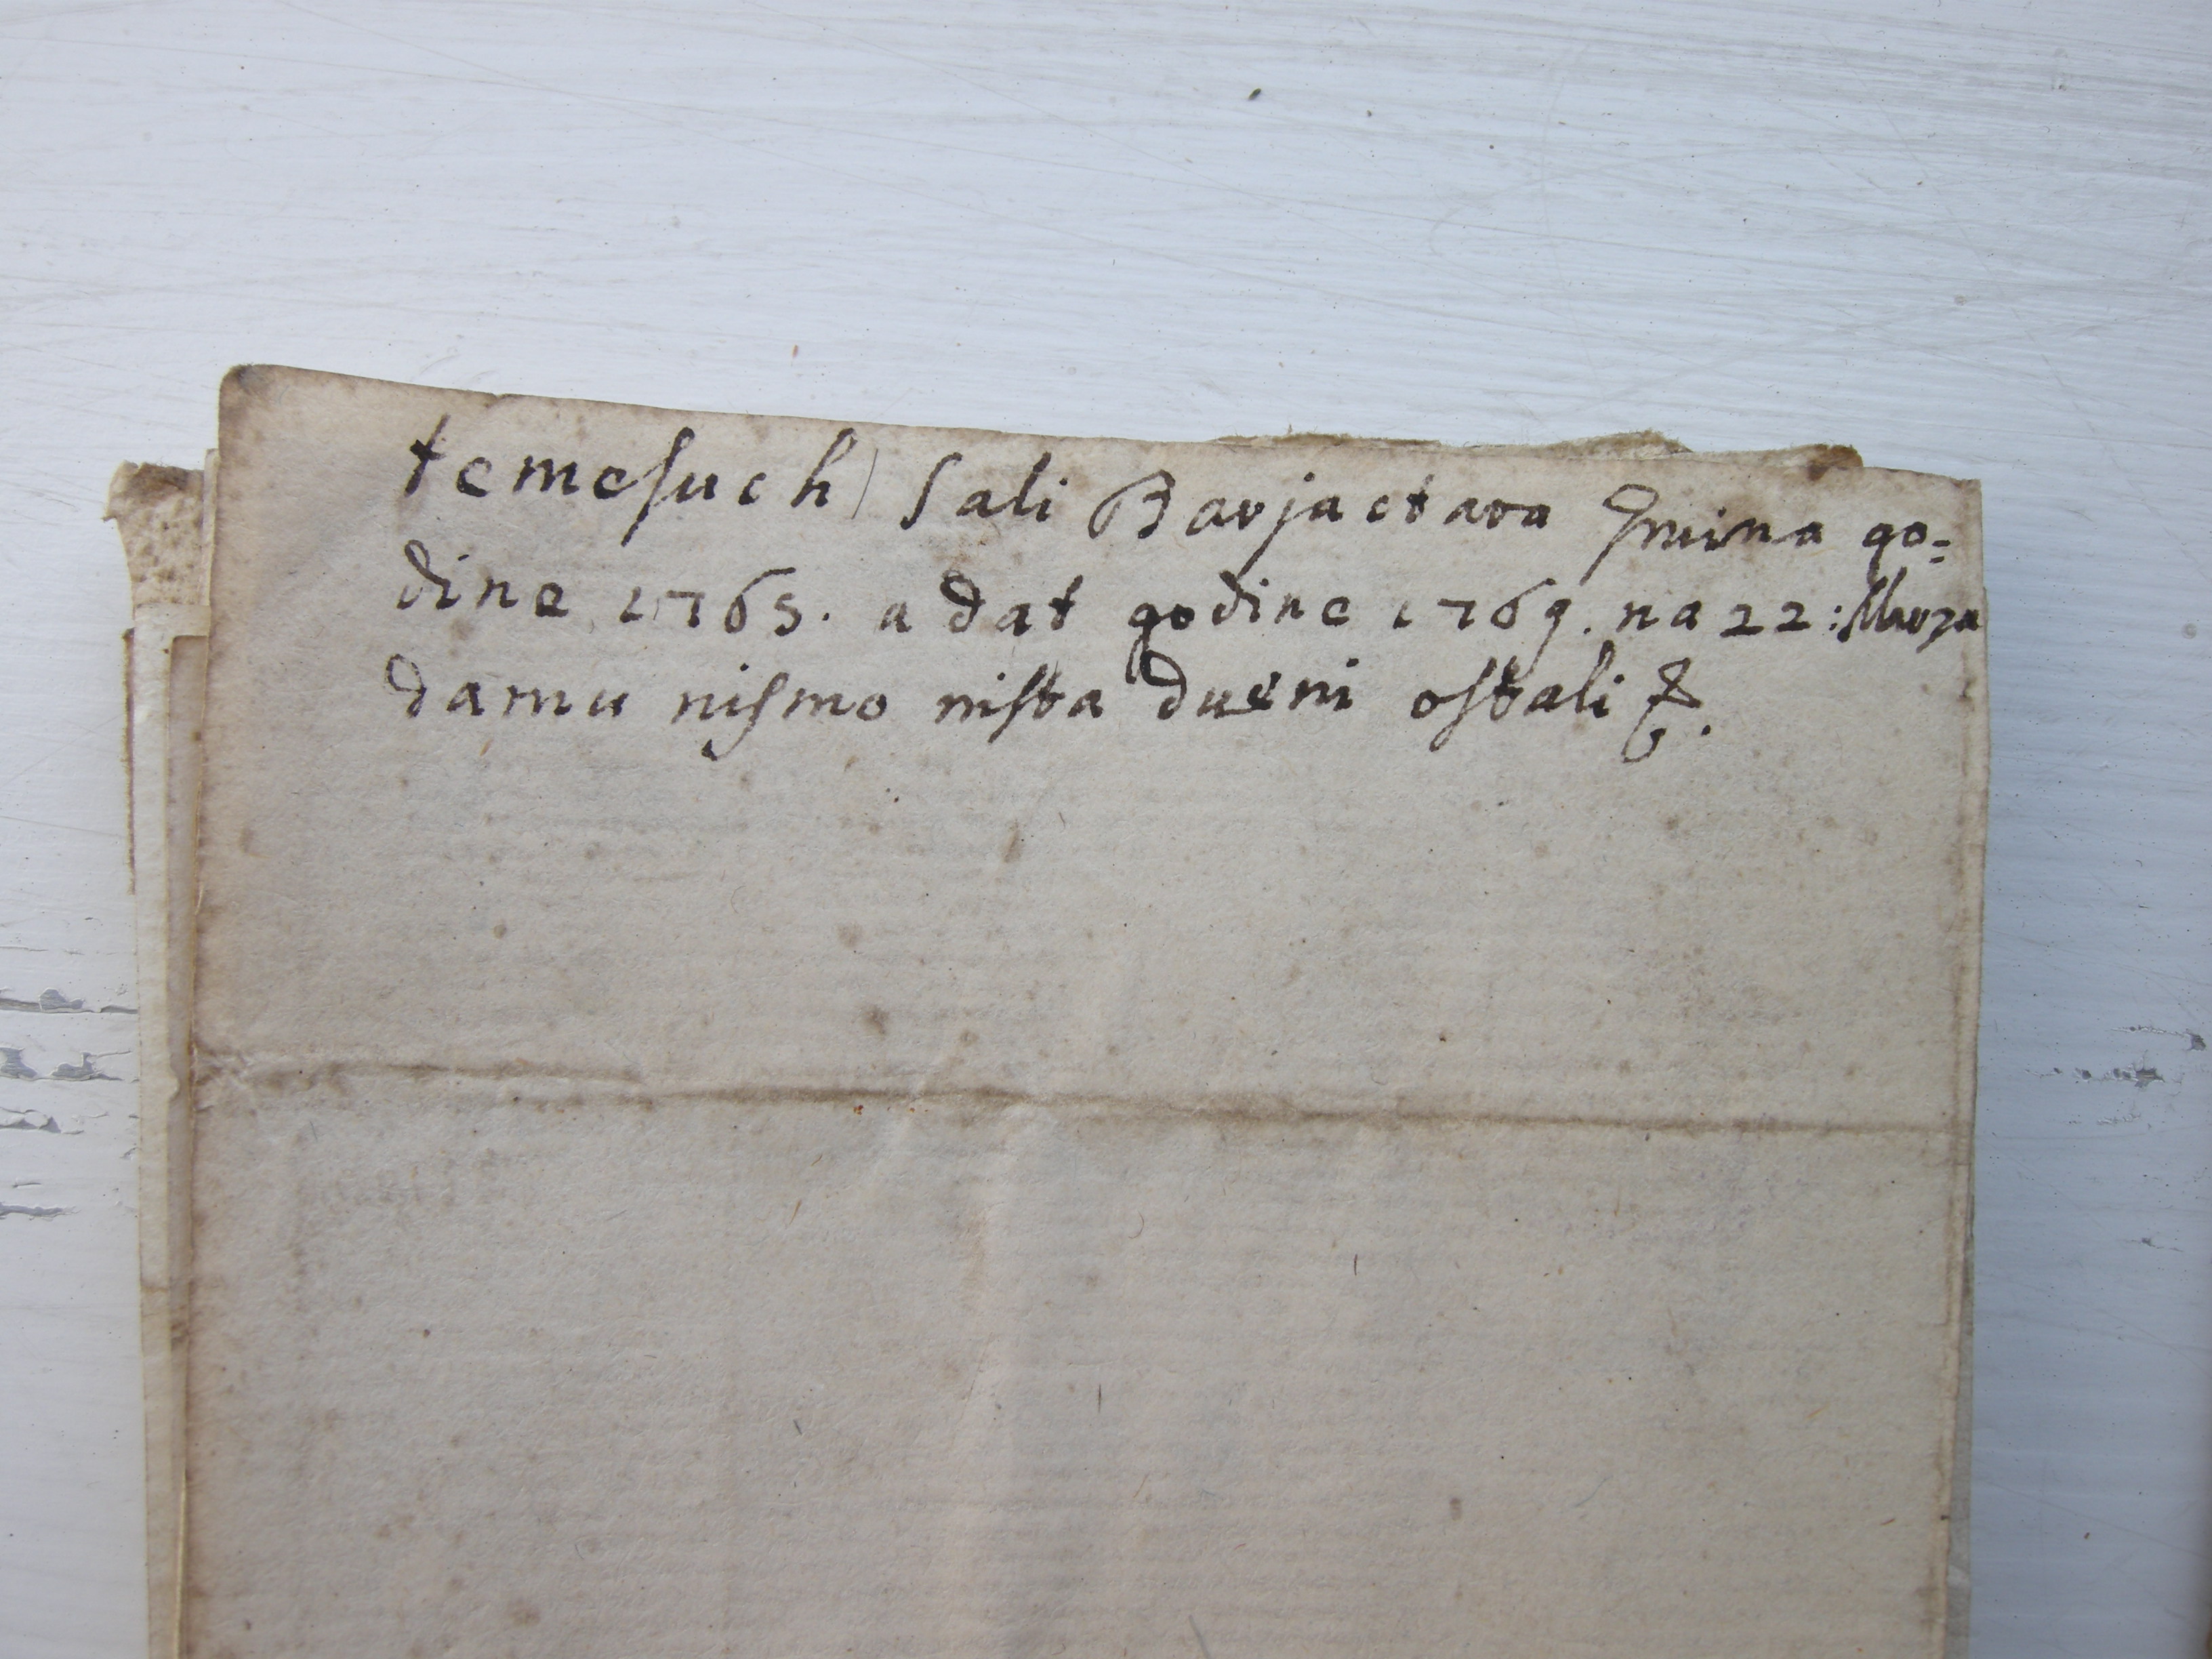 temeſuch) Sali Barjactara Imina go=
dine 1765. a dat godine 1769. na 22: Marza
damu niſmo niſta dueni oſtali